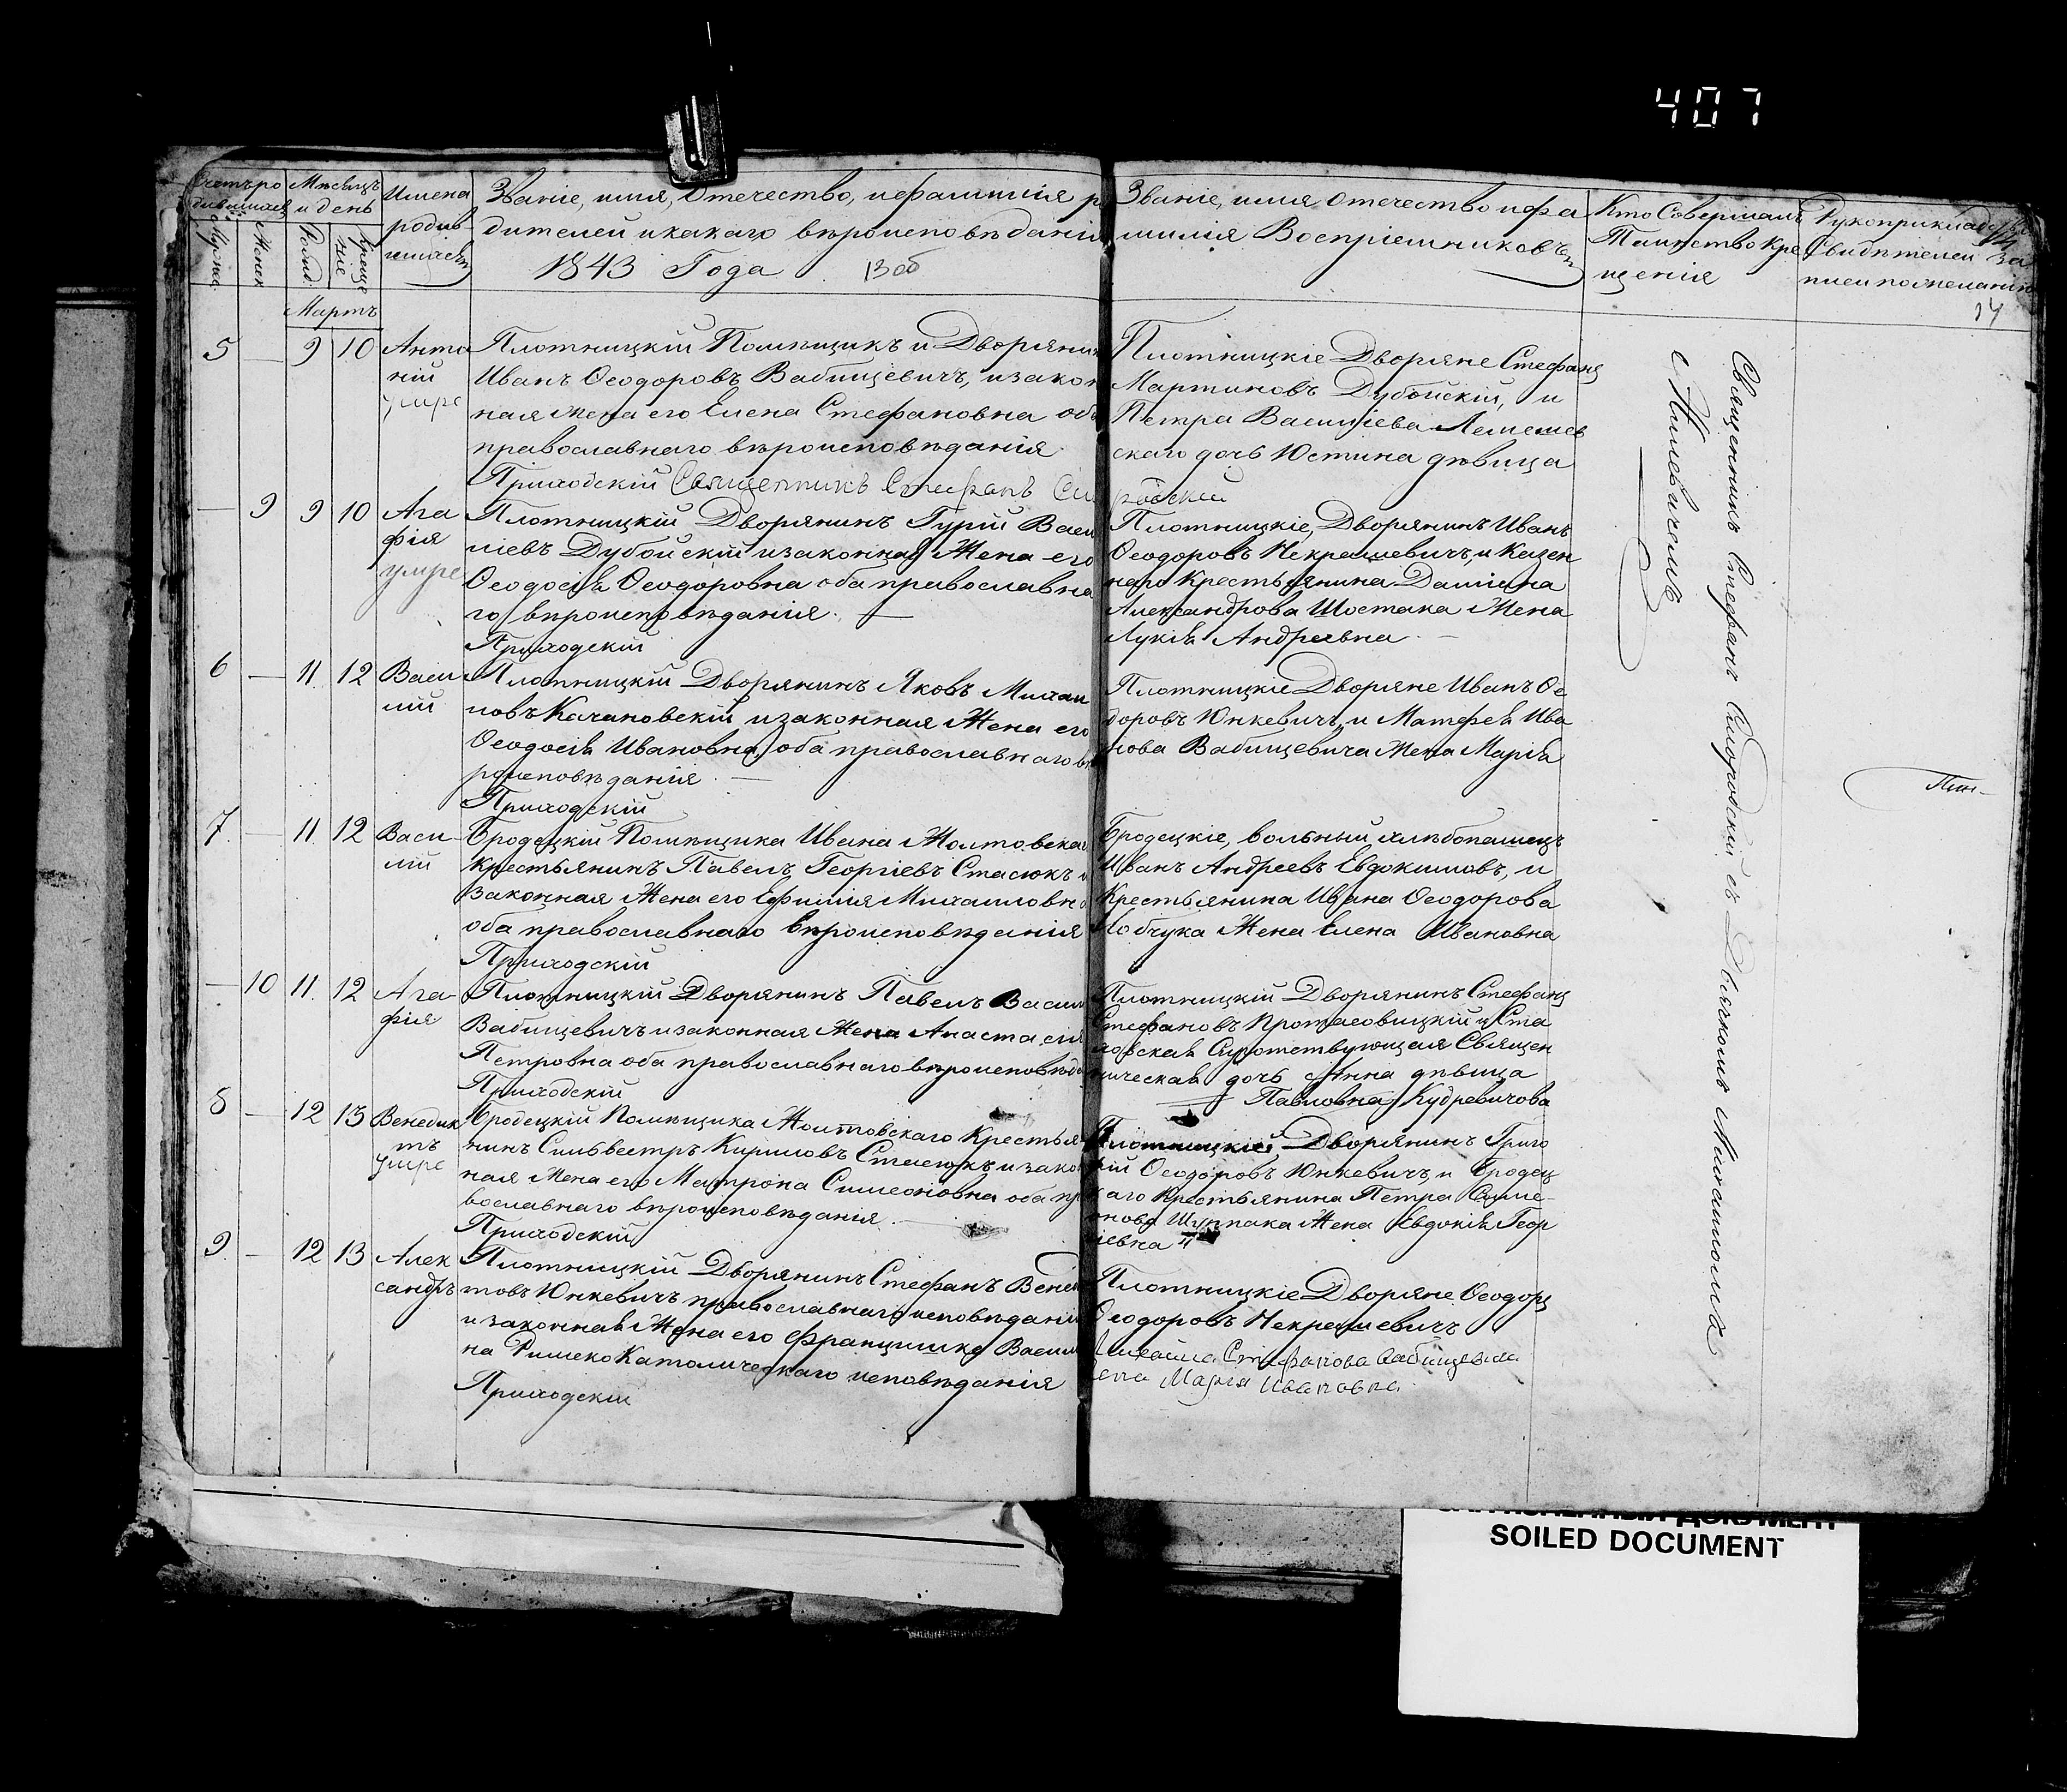 407
Счетъ ро
дившихся
Мѣсяцъ
и день
Имена
родив
шихся
Званіе, имя, Отечество, и фамилія ро
дителей и какаго вѣроисповѣданія
1843 Года 13 об
Мужеска
Женск
Рожд.
Креще
ніе
Мартъ
Званіе, имя Отечество и фа
милія Воспріемниковъ
Кто Совершалъ
Таинство Кре
щенія
Рукоприклад
Свидѣтелей За
писи по желанію
14
5 — 9 10 Анто
ній
умре
Плотницкій Помѣщикъ и Дворянин
Иванъ Ѳеодоровъ Вабищевичъ, и закон
ная жена его Елена Стефановна оба
православнаго вѣроисповѣданія
Приходскій Священникъ Стефанъ
Плотницкіе Дворяне Стефанъ
Мартиновъ Дубойскій, и
Петра Василіева Лемешев
скаго дочь Юстина дѣвица
— 9 9 10 Ага
фія
умре
Плотницкій Дворянинъ Гурій Васи
ліевъ Дубойскій и законная Жена его
Ѳеодосія Ѳеодоровна оба православна
го вѣроисповѣданія. —
Приходскій
Плотницкіе, Дворянинъ Иванъ
Ѳеодоровъ Некрашевичъ, и Казен
наго Крестьянина Даміана
Александрова Шостака Жена
Лукія Андреевна —
6 — 11. 12 Васи
лій
Плотницкій Дворянинъ Яковъ Михаи
ловъ Качановскій и законная Жена его
Ѳеодосія Ивановна, оба православнаго вѣ
роисповѣданія. —
Приходскій
Плотницкіе Дворяне Иванъ Ѳе
доровъ Юнкевичъ, и Матфея Ива
нова Вабищевича Жена Марія
7. — 11. 12 Васи
лій
Бродецкій Помѣщика Ивана Жолтовскаг
Крестьянинъ Павелъ Георгіевъ Стасюкъ и
Законная Жена его Ефимія Михаиловна
оба православнаго вѣроисповѣданія
Приходскій
Бродецкіе, вольный хлѣбопашецъ
Иванъ Андреевъ Евдокимовъ, и
Крестьянина Ивана Ѳеодорова
Жена Елена Ивановна
— 10 11. 12 Ага
фія
Плотницкій Дворянинъ Павелъ Васил
Вабищевичъ и законная Жена Анастасія
Петровна оба православнаго вѣроисповѣда
Приходскій
Плотницкій Дворянинъ Стефанъ
Стефановъ Протасовицкій и Ста
ховская Сиротствующая Священ
ническая дочь Анна дѣвица
Павловна Кудревичова
8 — 12 13 Венедик
тъ
умре
Бродецкій Помѣщика Жолтовскаго Крестья
нинъ Сильвестръ Кириловъ Стасюкъ и закон
ная Жена его Матрона Симеоновна оба пра
вославнаго вѣроисповѣданія. —
Приходскій
Плотницкій, Дворянинъ Григо
рій Ѳеодоровъ Юнкевичъ, и Бродец
каго Крестьянина Петра Симе-
онова Жена Евдокія Геор
гіевна
9. — 12 13 Алек
сандръ
Плотницкій Дворянинъ Стефанъ Венедик
товъ Юнкевичъ православнаго исповѣданія
и законная Жена его Францишка Васили
на РимскоКатолическаго исповѣданія
Приходскій
Плотницкіе Дворяне Ѳеодоръ
Ѳеодоровъ Некрашевичъ
Михаила Стефанова Вабищевича
жена Марія Ивановна
Священникъ Стефанъ съ Дьячкомъ Михаиломъ
Пин-
SOILED DOCUMENT